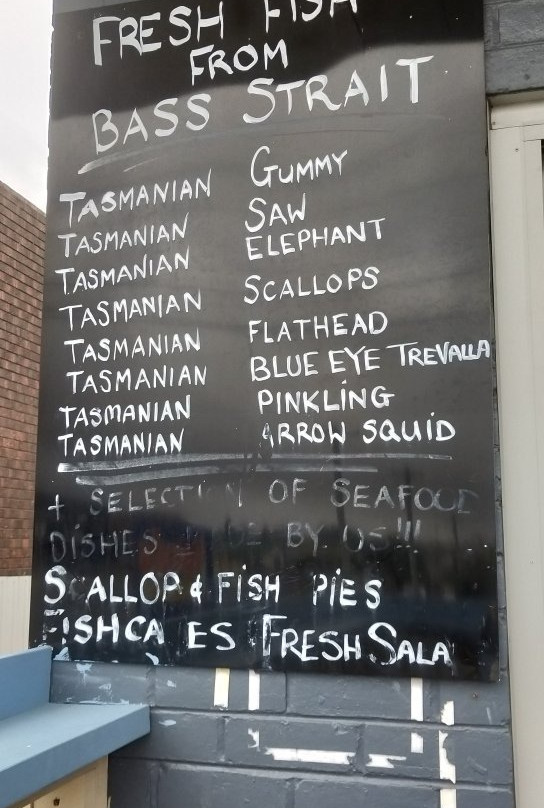 FRESH FISH
FROM
BASS STRAIT
TASMANIAN GUMMY
TASMANIAN SAW
TASMANIAN ELEPHANT
TASMANIAN SCALLOPS
TASMANIAN FLATHEAD
TASMANIAN BLUE EYE TREVALLA
TASMANIAN PINKLING
TASMANIAN ARROW SQUID
+ SELECTION OF SEAFOOD
DISHES MADE BY US!!!
SCALLOP & FISH PIES
FISHCAKES FRESH SALA